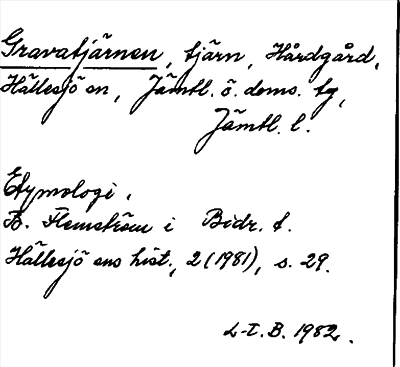 Gravatjärnen, tjärn, Hårdgård,
Hällesjö sn, Jämtl. ö. doms. tg,
Jämtl. l.
Etymologi.
B. Flemström i Bidr. t.
Hällesjö sns hist., 2 (1981), s. 29.
L-E. B. 1982.